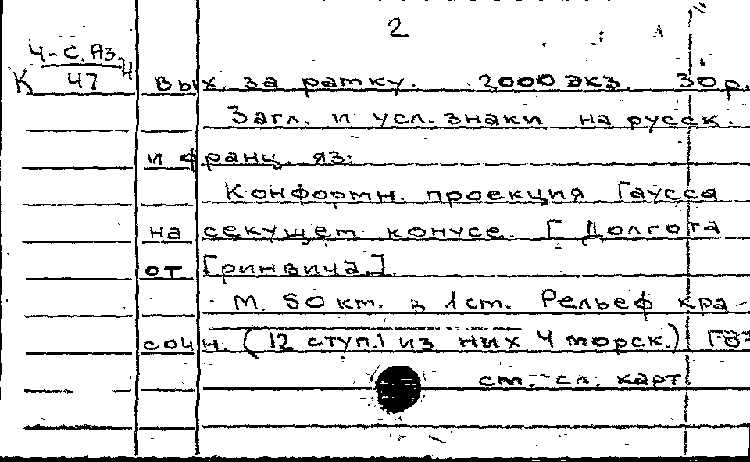 2
Ч-С.Аз.
К 47 Н
Вых. за рамку. 2000 экз. 30 р.
Загл. и усл. знаки на русск.
и франц. яз.
Конформн. проекция Гаусса
на секущем конусе. [Долгота
от Гринвича.]
М. 50 км. в 1 см. Рельеф кра-
сочн. (12 ступ. из них 4 морск.)
см. сл. карт.